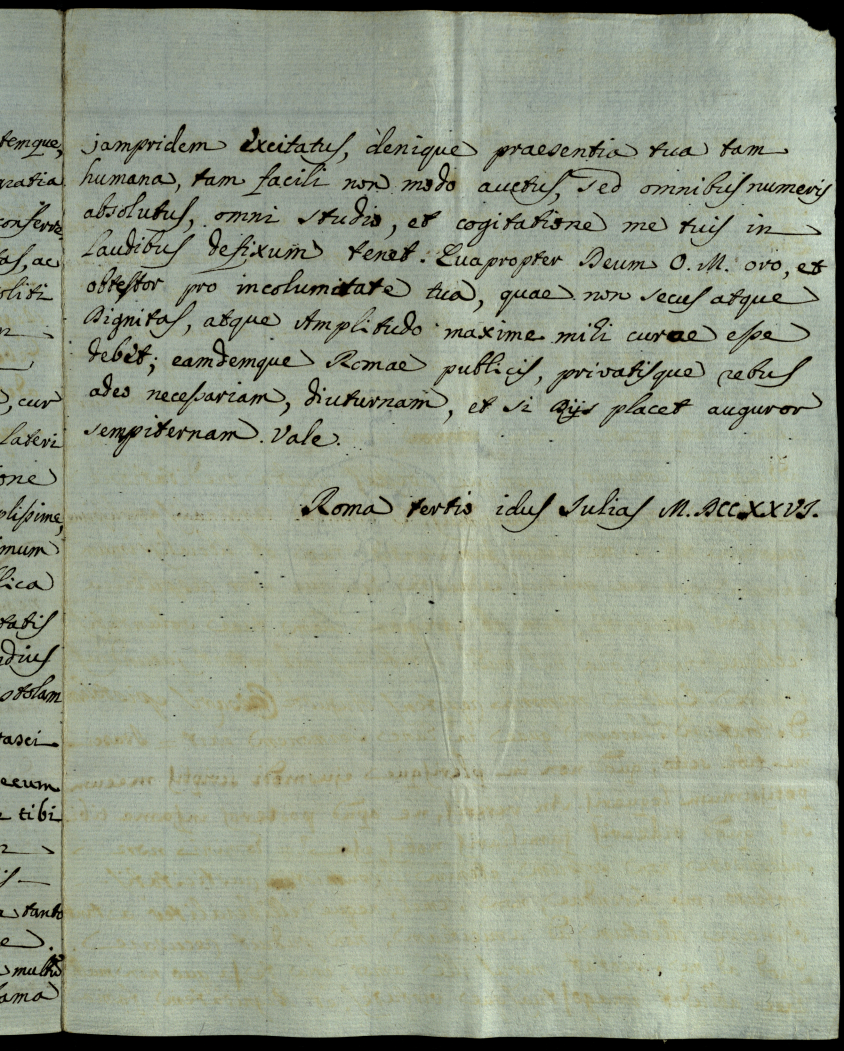 jampridem excitatus, denique praesentia tua tam
humana, tam facili non modo auctus, sed omnibus numeris
absolutus, omni studio, et cogitatione me tuis in
laudibus defixum tenet. Quapropter Deum O. M. oro, et
obtestor pro incolumitate tua, quae non secus atque
Dignitas, atque Amplitudo maxime mihi curae esse
debet; eamdemque Romae publicis, privatisque rebus
adeo necessariam, diuturnam, et si Dijs placet auguror
sempiternam. Vale.
Roma tertio idus Julias M.DCCXXVI.
temque,
gratia
tas, ac
oliti
, cur
lateri
one
plissime,
mum
lica
tatis
dius
stolam
tasci
ecum
tibi
a tanto
e.
multo
ama